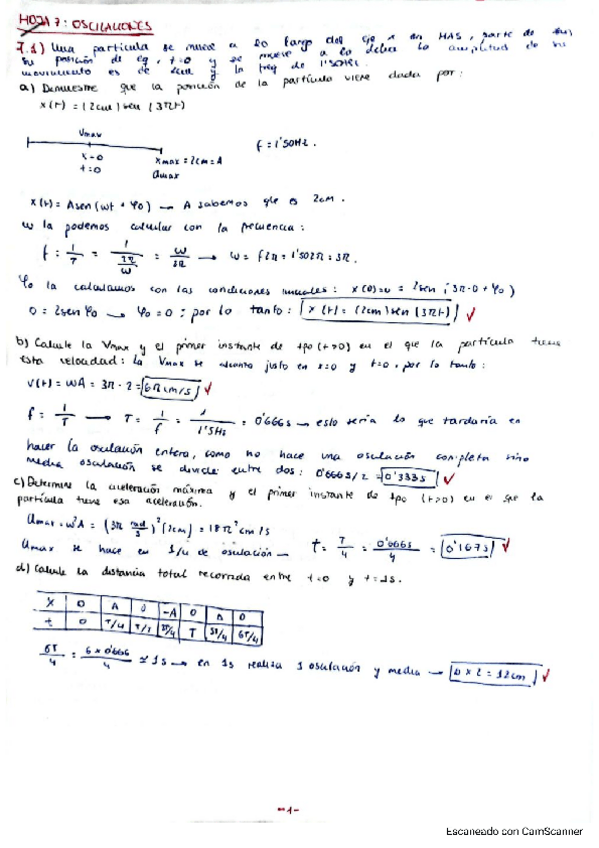 HOJA 7: OSCILACIONES
7.1) Una partícula se mueve a lo largo del eje x en MAS, parte de
su posición de eq, t=0 y se mueve a la dcha. La amplitud de su
movimiento es de 2cm y la freq de 1'50Hz.
a) Demuestre que la posición de la partícula viene dada por:
x(t) = (2cm) sen (3πt)
Vmax
x=0
t=0
xmax = 2cm = A
amax
f = 1'50Hz.
x(t) = A sen (ωt + φ0) → A sabemos que es 2cm.
ω la podemos calcular con la frecuencia:
f = 1/T = 1/(2π/ω) = ω/2π → ω = f2π = 1'50 2π = 3π.
φ0 la calculamos con las condiciones iniciales: x(0)=0 = 2sen (3π·0 + φ0)
0 = 2sen φ0 → φ0 = 0; por lo tanto: x(t) = (2cm) sen (3πt) ✓
b) Calcule la Vmax y el primer instante de tpo (t>0) en el que la partícula tiene
esta velocidad: la Vmax se alcanza justo en x=0 y t=0, por lo tanto:
v(t) = ωA = 3π · 2 = 6π cm/s ✓
f = 1/T → T = 1/f = 1/1'5Hz = 0'666s → esto sería lo que tardaría en
hacer la oscilación entera, como no hace una oscilación completa sino
media oscilación se divide entre dos: 0'666s/2 = 0'333s ✓
c) Determine la aceleración máxima y el primer instante de tpo (t>0) en el que la
partícula tiene esa aceleración.
amax = ω²A = (3π rad/s)² (2cm) = 18π² cm/s
amax se hace en 1/4 de oscilación → t = T/4 = 0'666s/4 = 0'167s ✓
d) Calcule la distancia total recorrida entre t=0 y t=1s.
x 0 A 0 -A 0 A 0
t 0 T/4 T/2 3T/4 T 5T/4 6T/4
6T/4 = 6×0'666/4 ≃ 1s → en 1s realiza 1 oscilación y media → 6 x 2 = 12cm ✓
-1-
Escaneado con CamScanner